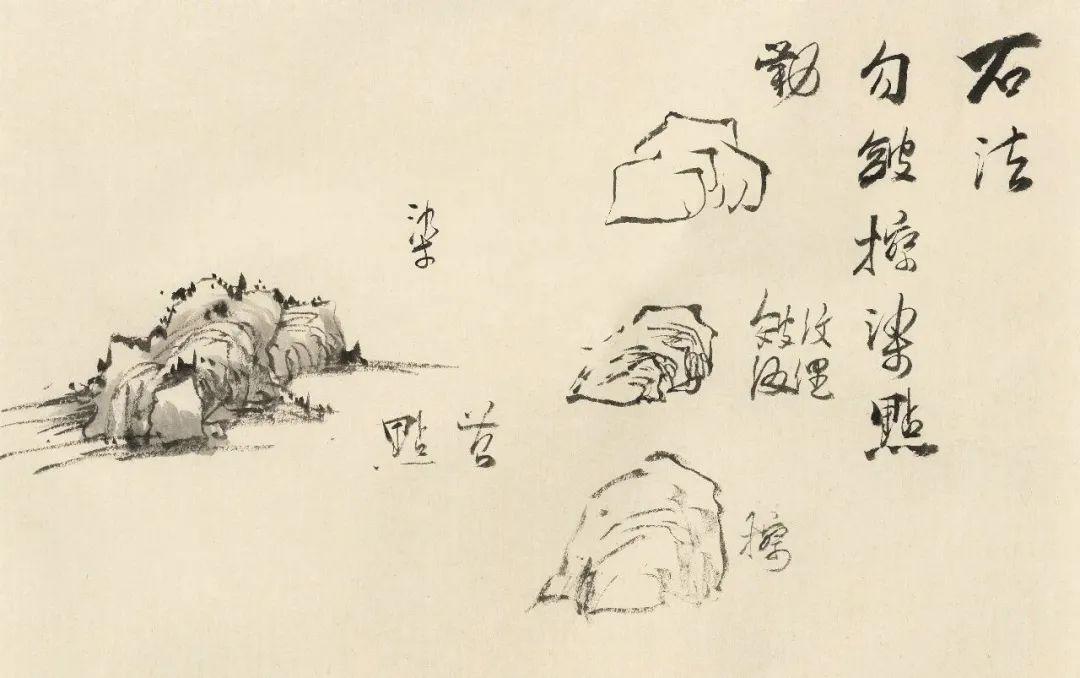 石法
勾皴擦染點
紋理
皴
擦
染
苔點